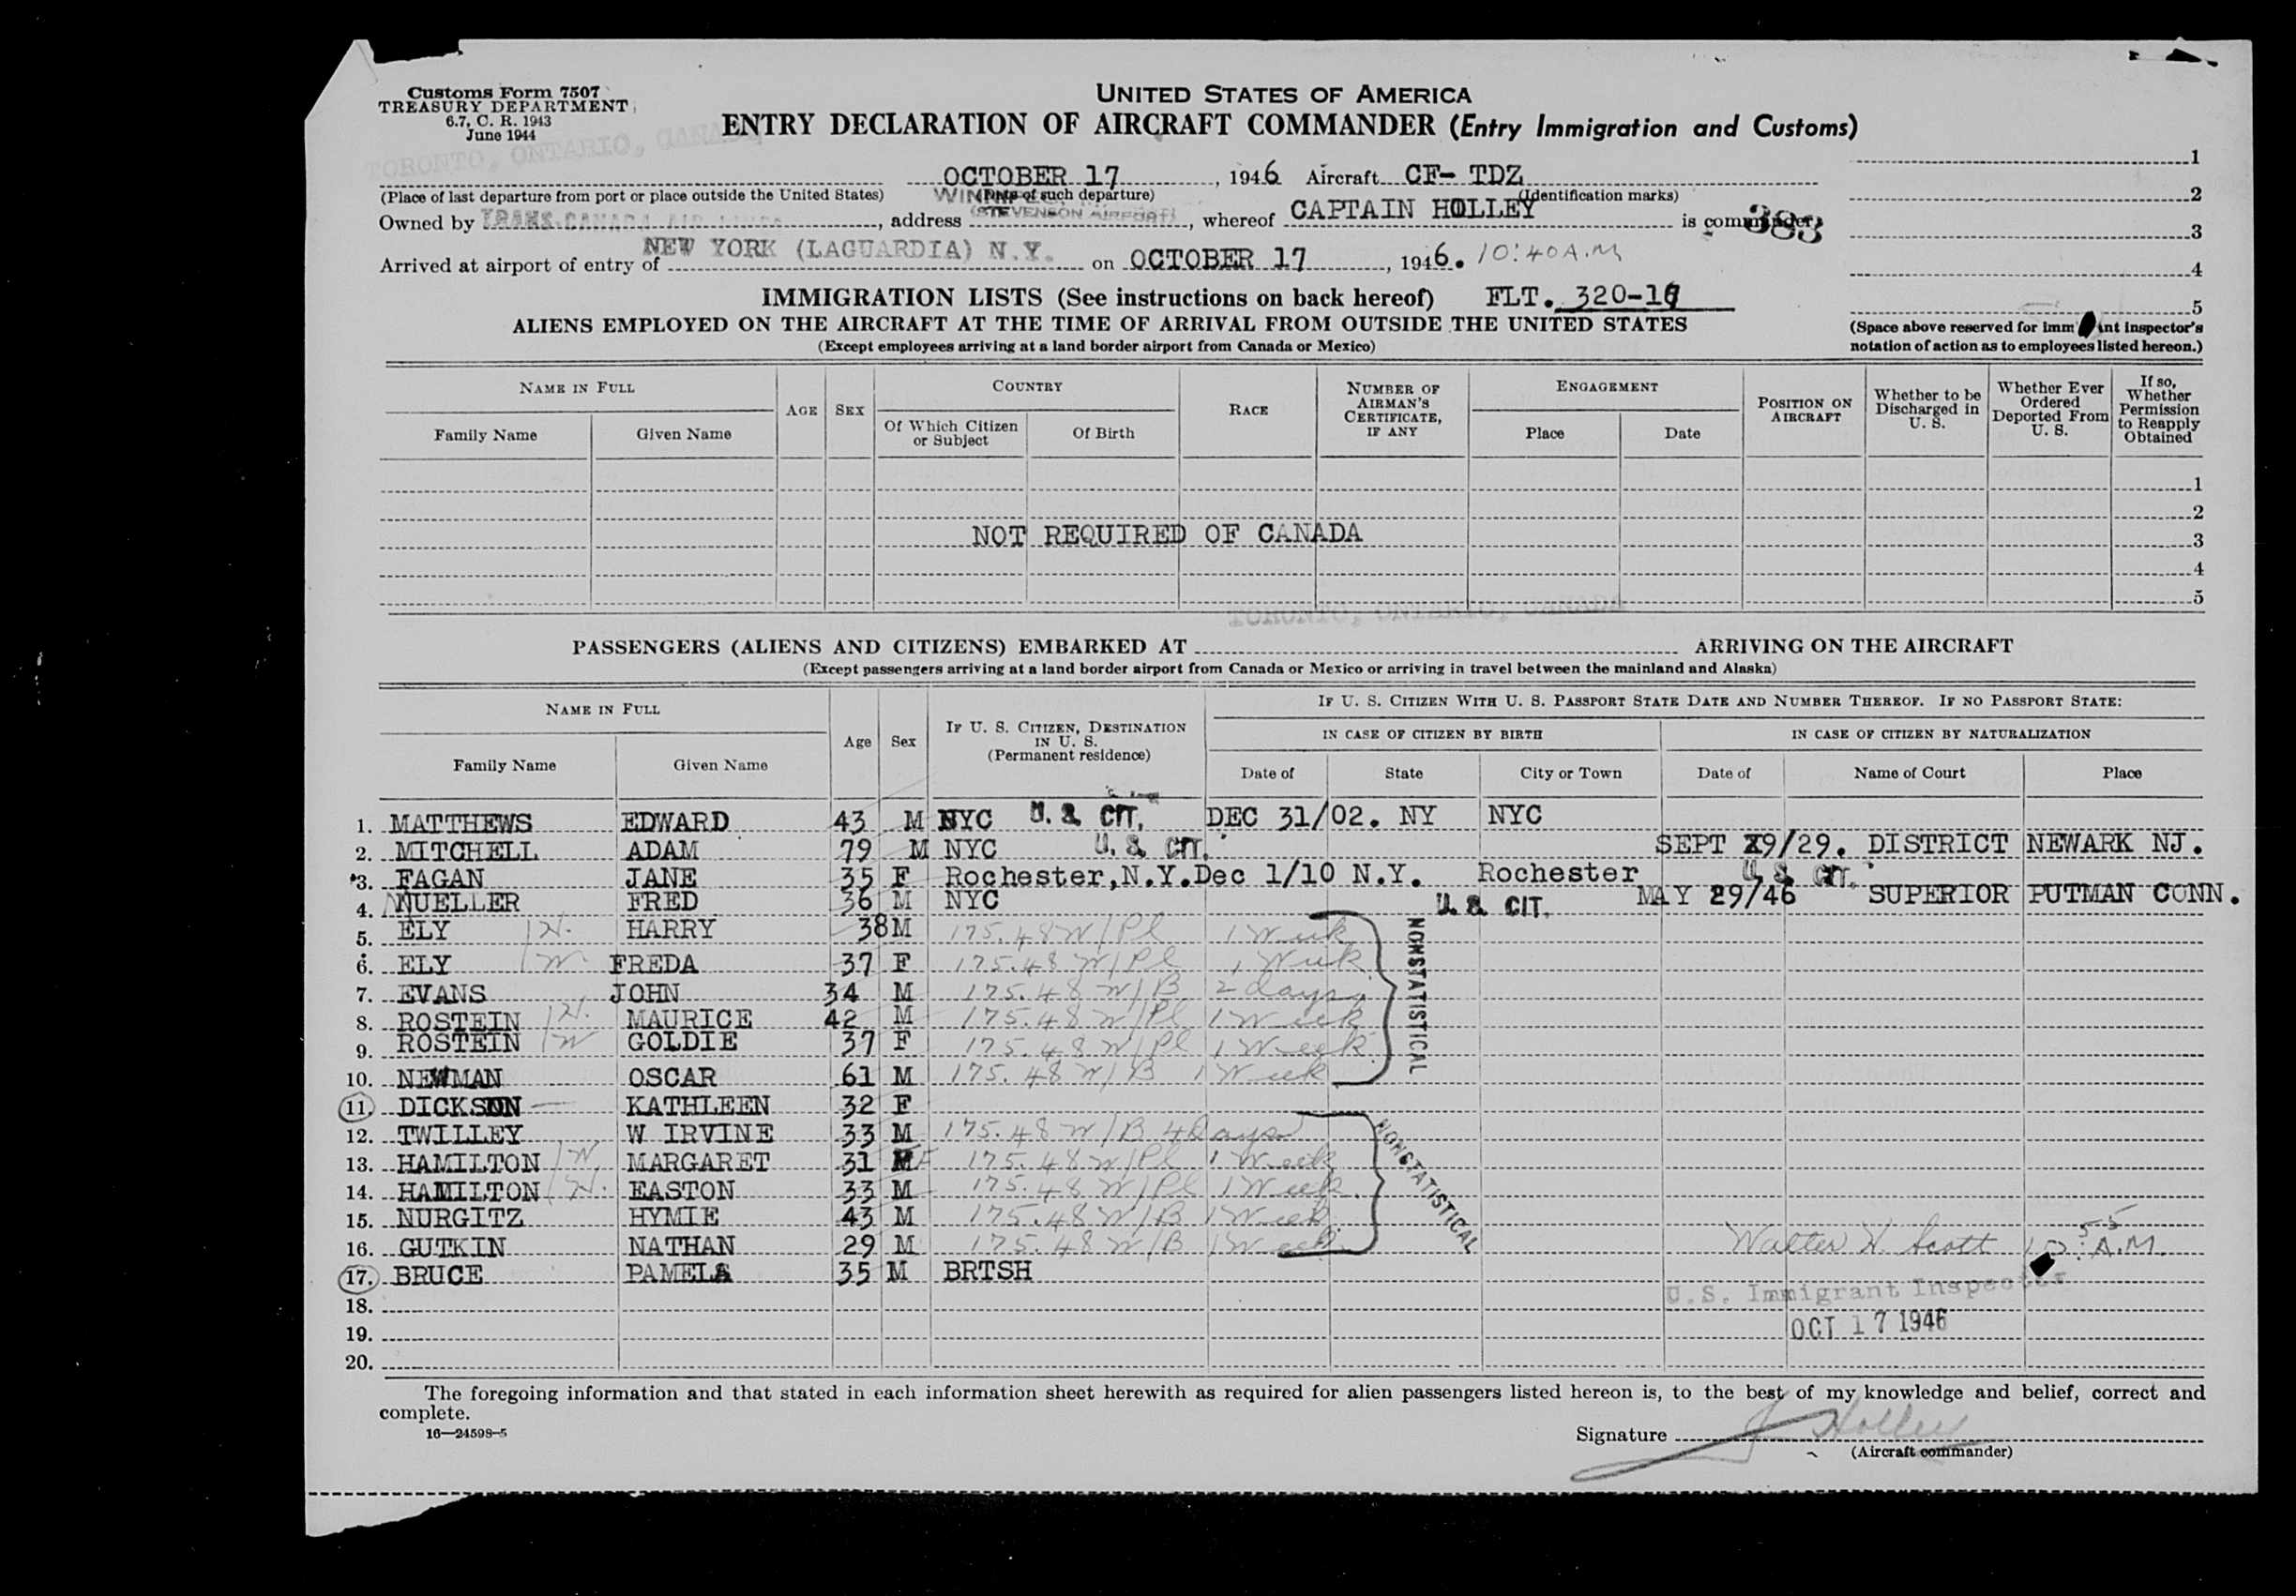 Customs Form 7507
TREASURY DEPARTMENT
6.7, C. R. 1943
June 1944
UNITED STATES OF AMERICA
ENTRY DECLARATION OF AIRCRAFT COMMANDER (Entry Immigration and Customs)
TORONTO, ONTARIO, CANADA
OCTOBER 17, 1946 Aircraft CF- TDZ
(Place of last departure from port or place outside the United States) (Date of such departure) (Identification marks)
Owned by TRANS-CANADA AIR LINES, address (STEVENSON AIRPORT), whereof CAPTAIN HOLLEY is commander
383
Arrived at airport of entry of NEW YORK (LAGUARDIA) N.Y. on OCTOBER 17, 1946. 10:40 A.M
1
2
3
4
5
IMMIGRATION LISTS (See instructions on back hereof) FLT. 320-16
ALIENS EMPLOYED ON THE AIRCRAFT AT THE TIME OF ARRIVAL FROM OUTSIDE THE UNITED STATES
(Except employees arriving at a land border airport from Canada or Mexico)
(Space above reserved for Immigrant Inspector's
notation of action as to employees listed hereon.)
NAME IN FULL
Family Name Given Name
AGE SEX
COUNTRY
Of Which Citizen or Subject Of Birth
RACE
NUMBER OF AIRMAN'S CERTIFICATE, IF ANY
ENGAGEMENT
Place Date
POSITION ON AIRCRAFT
Whether to be Discharged in U. S.
Whether Ever Ordered Deported From U. S.
If so, Whether Permission to Reapply Obtained
1
2
NOT REQUIRED OF CANADA 3
4
5
TORONTO, ONTARIO, CANADA
PASSENGERS (ALIENS AND CITIZENS) EMBARKED AT ARRIVING ON THE AIRCRAFT
(Except passengers arriving at a land border airport from Canada or Mexico or arriving in travel between the mainland and Alaska)
NAME IN FULL
Family Name Given Name
Age Sex
IF U. S. CITIZEN, DESTINATION IN U. S. (Permanent residence)
IF U. S. CITIZEN WITH U. S. PASSPORT STATE DATE AND NUMBER THEREOF. IF NO PASSPORT STATE:
IN CASE OF CITIZEN BY BIRTH IN CASE OF CITIZEN BY NATURALIZATION
Date of State City or Town Date of Name of Court Place
1. MATTHEWS EDWARD 43 M NYC U. S. CIT. DEC 31/02. NY NYC
2. MITCHELL ADAM 79 M NYC U. S. CIT. SEPT 29/29. DISTRICT NEWARK NJ.
3. FAGAN JANE 35 F Rochester, N.Y. Dec 1/10 N.Y. Rochester U. S. CIT.
4. MUELLER FRED 36 M NYC U. S. CIT. MAY 29/46 SUPERIOR PUTMAN CONN.
5. ELY H. HARRY 38 M 175.48 W/Pl 1 Week
6. ELY W FREDA 37 F 175.48 W/Pl 1 Week
7. EVANS JOHN 34 M 175.48 W/B 2 days
8. ROSTEIN H. MAURICE 42 M 175.48 W/Pl 1 Week
9. ROSTEIN W GOLDIE 37 F 175.48 W/Pl 1 Week
10. NEWMAN OSCAR 61 M 175.48 W/B 1 Week
NONSTATISTICAL
11. DICKSON KATHLEEN 32 F
12. TWILLEY W IRVINE 33 M 175.48 W/B 4 Days
13. HAMILTON W. MARGARET 31 F 175.48 W/Pl 1 Week
14. HAMILTON H. EASTON 33 M 175.48 W/Pl 1 Week
15. NURGITZ HYMIE 43 M 175.48 W/B 1 Week
16. GUTKIN NATHAN 29 M 175.48 W/B 1 Week
NONSTATISTICAL
Walter H. Scott 10:55 A.M.
17. BRUCE PAMELA 35 M BRTSH
U.S. Immigrant Inspector
18.
OCT 17 1946
19.
20.
The foregoing information and that stated in each information sheet herewith as required for alien passengers listed hereon is, to the best of my knowledge and belief, correct and
complete.
16—24598-5
Signature J Holley
(Aircraft commander)